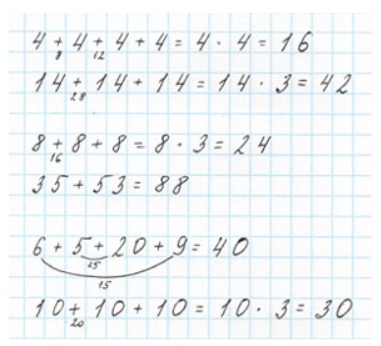 4 + 4 + 4 + 4 = 4 · 4 = 16
8 12
14 + 14 + 14 = 14 · 3 = 42
28
8 + 8 + 8 = 8 · 3 = 24
16
35 + 53 = 88
6 + 5 + 20 + 9 = 40
25
15
10 + 10 + 10 = 10 · 3 = 30
20